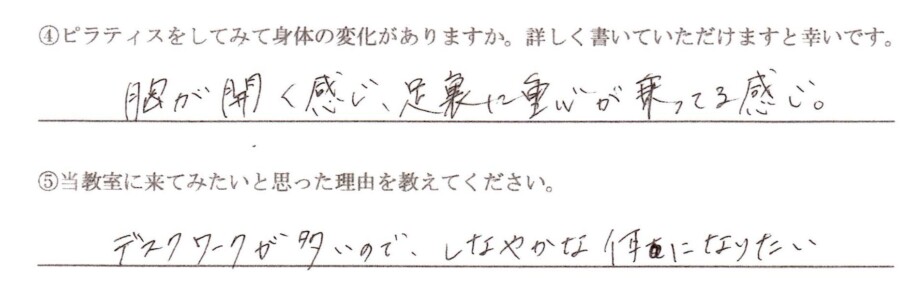 ④ピラティスをしてみて身体の変化がありますか。詳しく書いていただけますと幸いです。
胸が開く感じ、足裏に重心が乗ってる感じ。
⑤当教室に来てみたいと思った理由を教えてください。
デスクワークが多いので、しなやかな体になりたい